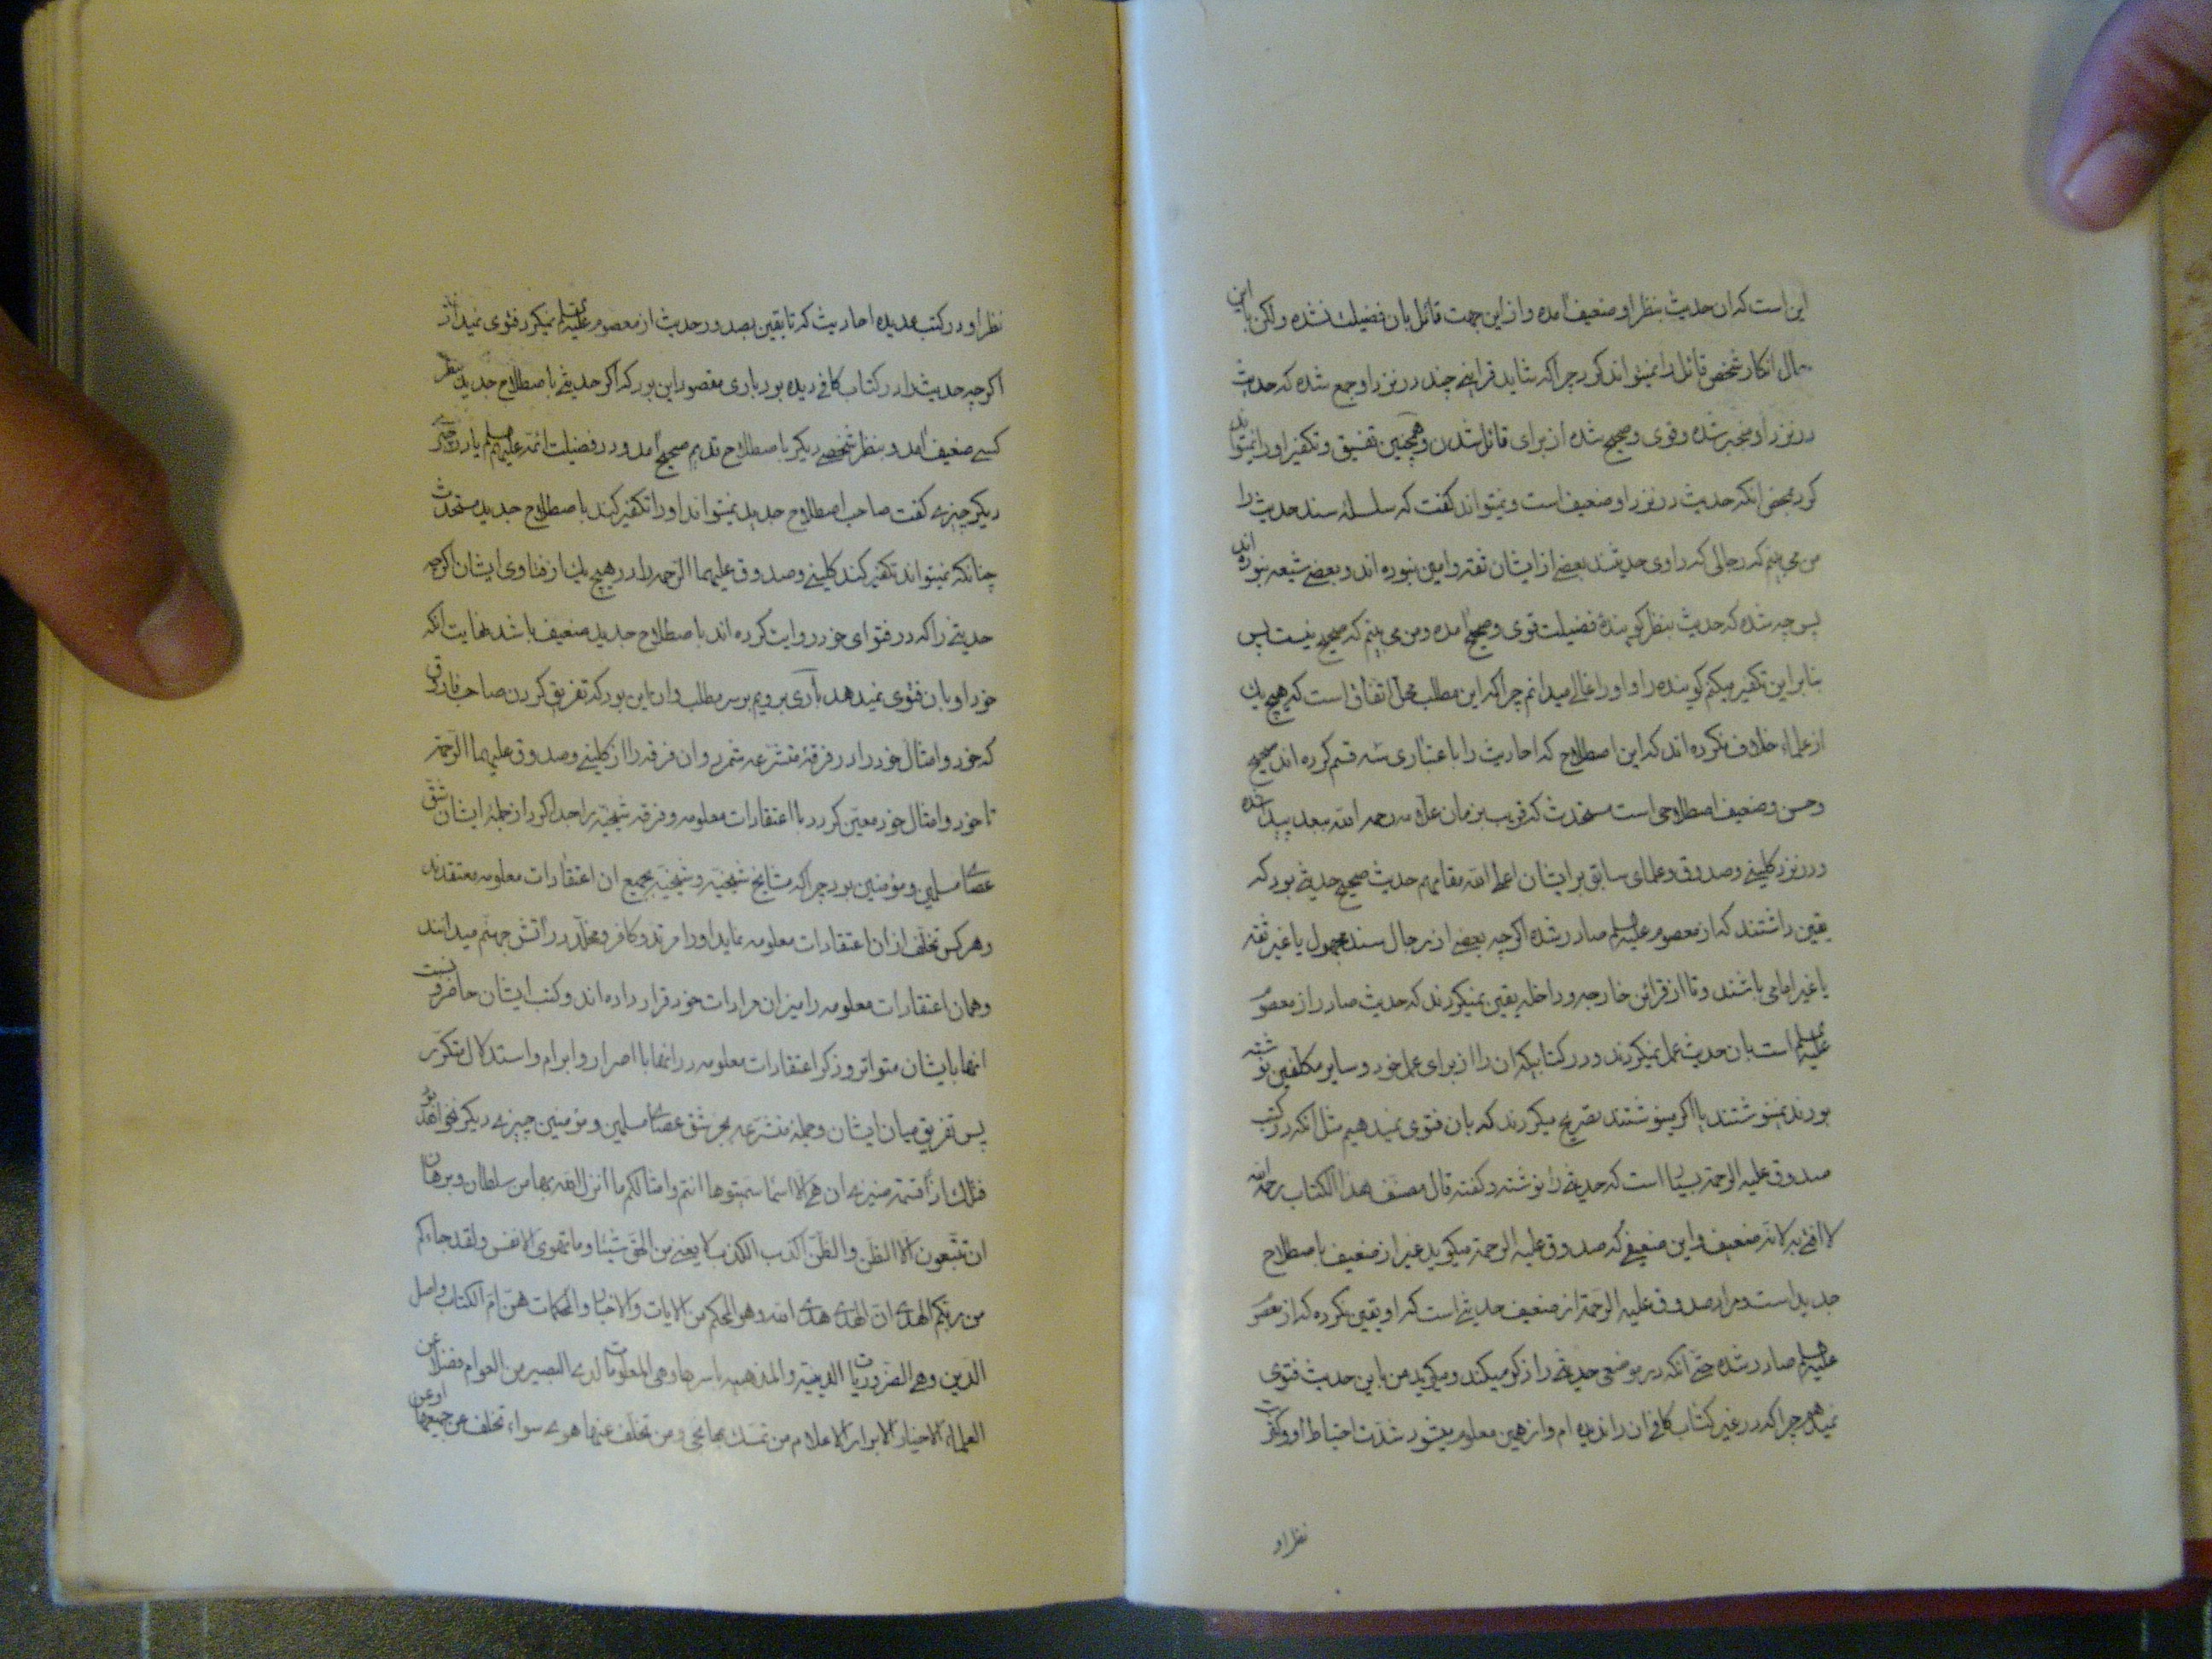 این است که ان حدیث بنظر او ضعیف آمده و از این جهت قائل بان فضیلت نشده ولکن با این
حال انکار شخص قائل را نمیتواند کرد چرا که شاید قراینی چند در نزد او جمع شده که حدیث
در نزد او منجبر شده و قوی و صحیح شده از برای قائل شدن و همچنین تفسیق و تکفیر او را نمیتواند
کرد بمحض انکه حدیث در نزد او ضعیف است و نمیتواند گفت که سلسله سند حدیث را
من می بینم که رجالی که راوی حدیثند بعضی از ایشان ثقه و امین نبوده اند و بعضی شیعه نبوده اند
پس چه شده که حدیث بنظر گویندهٔ فضیلت قوی و صحیح آمده و من می بینم که صحیح نیست پس
بنابر این تکفیر میکنم گوینده را و او را غالی میدانم چرا که این مطلب محل اتفاق است که هیچ یک
از علماء خلاف نکرده اند که این اصطلاح که احادیث را باعتباری سه قسم کرده اند صحیح
و حسن و ضعیف اصطلاحی است مستحدث که قریب بزمان علامه رحمه الله ببعد پیدا شده
و در نزد کلینی و صدوق و علمای سابق بر ایشان اعلی الله مقامهم حدیث صحیح حدیثی بود که
یقین داشتند که از معصوم علیه السلم صادر شده اگرچه بعضی از رجال سند مجهول یا غیر ثقه
یا غیر امامی باشند و تا از قرائن خارجه و داخله یقین نمیکردند که حدیث صادر از معصوم
علیه السلم است بان حدیث عمل نمیکردند و در کتابیکه ان را از برای عمل خود و سایر مکلفین نوشته
بودند نمینوشتند یا اگر مینوشتند تصریح میکردند که بان فتوی نمیدهیم مثل انکه در کتب
صدوق علیه الرحمة بسیار است که حدیثی را نوشته و گفته قال مصنف هذا الکتاب رحمه الله
لا افتی به لانه ضعیف و این ضعیفی که صدوق علیه الرحمة میگوید غیر از ضعیف باصطلاح
جدید است و مراد صدوق علیه الرحمة از ضعیف حدیثی است که او یقین نکرده که از معصوم
علیه السلم صادر شده حتی آنکه در موضعی حدیثی را ذکر میکند و میگوید من باین حدیث فتوی
نمیدهم چرا که در غیر کتاب کافی ان را ندیده ام و از همین معلوم میشود شدت احتیاط او و کثرت
نظر او
نظر او در کتب عدیده احادیث که تا یقین بصدور حدیث از معصوم علیه السلم نمیکرد فتوی نمیداد
اگرچه حدیث را در کتاب کافی دیده بود باری مقصود این بود که اگر حدیثی باصطلاح جدید بنظر
کسی ضعیف آمد و بنظر شخصی دیگر باصطلاح قدیم صحیح آمد و در فضیلت ائمه علیهم السلم یا در چیز
دیگر چیزی گفت صاحب اصطلاح جدید نمیتواند او را تکفیر کند باصطلاح جدید مستحدث
چنانکه نمیتواند تکفیر کند کلینی و صدوق علیهما الرحمه را در هیچ یک از فتاوی ایشان اگرچه
حدیثی را که در فتوای خود روایت کرده اند باصطلاح جدید ضعیف باشد نهایت انکه
خود او بان فتوی نمیدهد باری برویم بر سر مطلب و ان این بود که تفریق کردن صاحب فارق
که خود و امثال خود را در فرقهٔ متشرعه شمرد و ان فرقه را از کلینی و صدوق علیهما الرحمة
تا خود و امثال خود معین کرد با اعتقادات معلومه و فرقه شیخیه را جدا کرد از جملهٔ ایشان شق
عصای مسلمین و مؤمنین بود چرا که مشایخ شیخیه و شیخیه بجمیع ان اعتقادات معلومه معتقدند
و هر کس تخلف از ان اعتقادات معلومه نماید او را مرتد و کافر و مخلد در آتش جهنم میدانند
و همان اعتقادات معلومه را میزان مرادات خود قرار داده اند و کتب ایشان حاضر و نسبت
انها بایشان متواتر و ذکر اعتقادات معلومه در انها با اصرار و ابرام و استدلال متکرر
پس تفریق میان ایشان و جملهٔ متشرعه بجز شق عصای مسلمین و مؤمنین چیزی دیگر نخواهد بود
فتلک اذا قسمة ضیزی ان هی الا اسماء سمیتموها انتم و امثالکم ما انزل الله بها من سلطان و برهان
ان تتبعون الا الظن و الظن اکذب الکذب لا یغنی من الحق شیئا و ما تهوی الانفس و لقد جاءکم
من ربکم الهدی ان الهدی هدی الله و هو المحکم من الایات و الاخبار و المحکمات هن ام الکتاب و اصل
الدین و هی الضروریات الدینیة و المذهبیه باسرها و هی المعلومات لدی البصیر من العوام فضلا عن
العلماء الاخیار الابرار الاعلام من تمسک بها نجی و من تخلف عنها هوی سواء تخلف عن جمیعها او عن